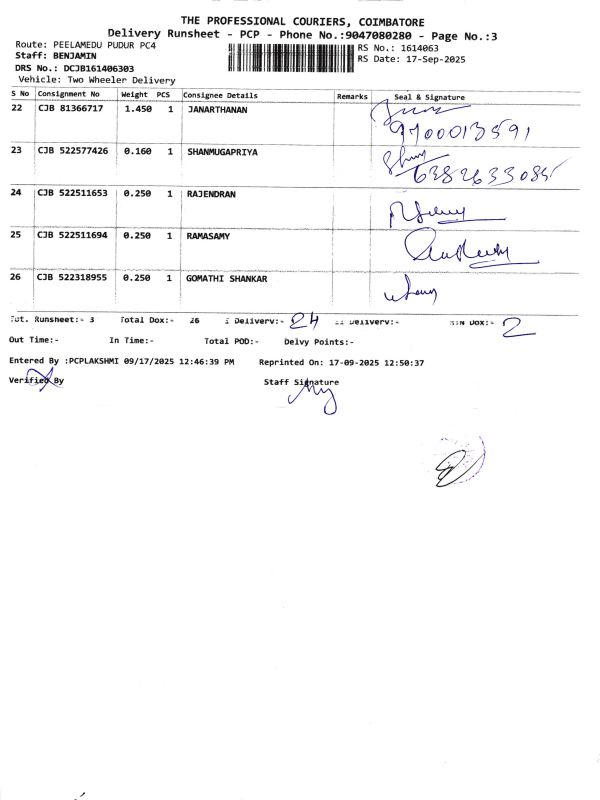 THE PROFESSIONAL COURIERS, COIMBATORE
Delivery Runsheet - PCP - Phone No.:9047080280 - Page No.:3
Route: PEELAMEDU PUDUR PC4
Staff: BENJAMIN
RS No.: 1614063
DRS No.: DCJB161406303
RS Date: 17-Sep-2025
Vehicle: Two Wheeler Delivery
S No Consignment No Weight PCS Consignee Details Remarks Seal & Signature
22 CJB 81366717 1.450 1 JANARTHANAN
23 CJB 522577426 0.160 1 SHANMUGAPRIYA
24 CJB 522511653 0.250 1 RAJENDRAN
25 CJB 522511694 0.250 1 RAMASAMY
26 CJB 522318955 0.250 1 GOMATHI SHANKAR
Tot. Runsheet:- 3 Total Dox:- 26 Delivery:- 24 Delivery:- Dox:- 2
Out Time:- In Time:- Total POD:- Delvy Points:-
Entered By :PCPLAKSHMI 09/17/2025 12:46:39 PM Reprinted On: 17-09-2025 12:50:37
Verified By Staff Signature